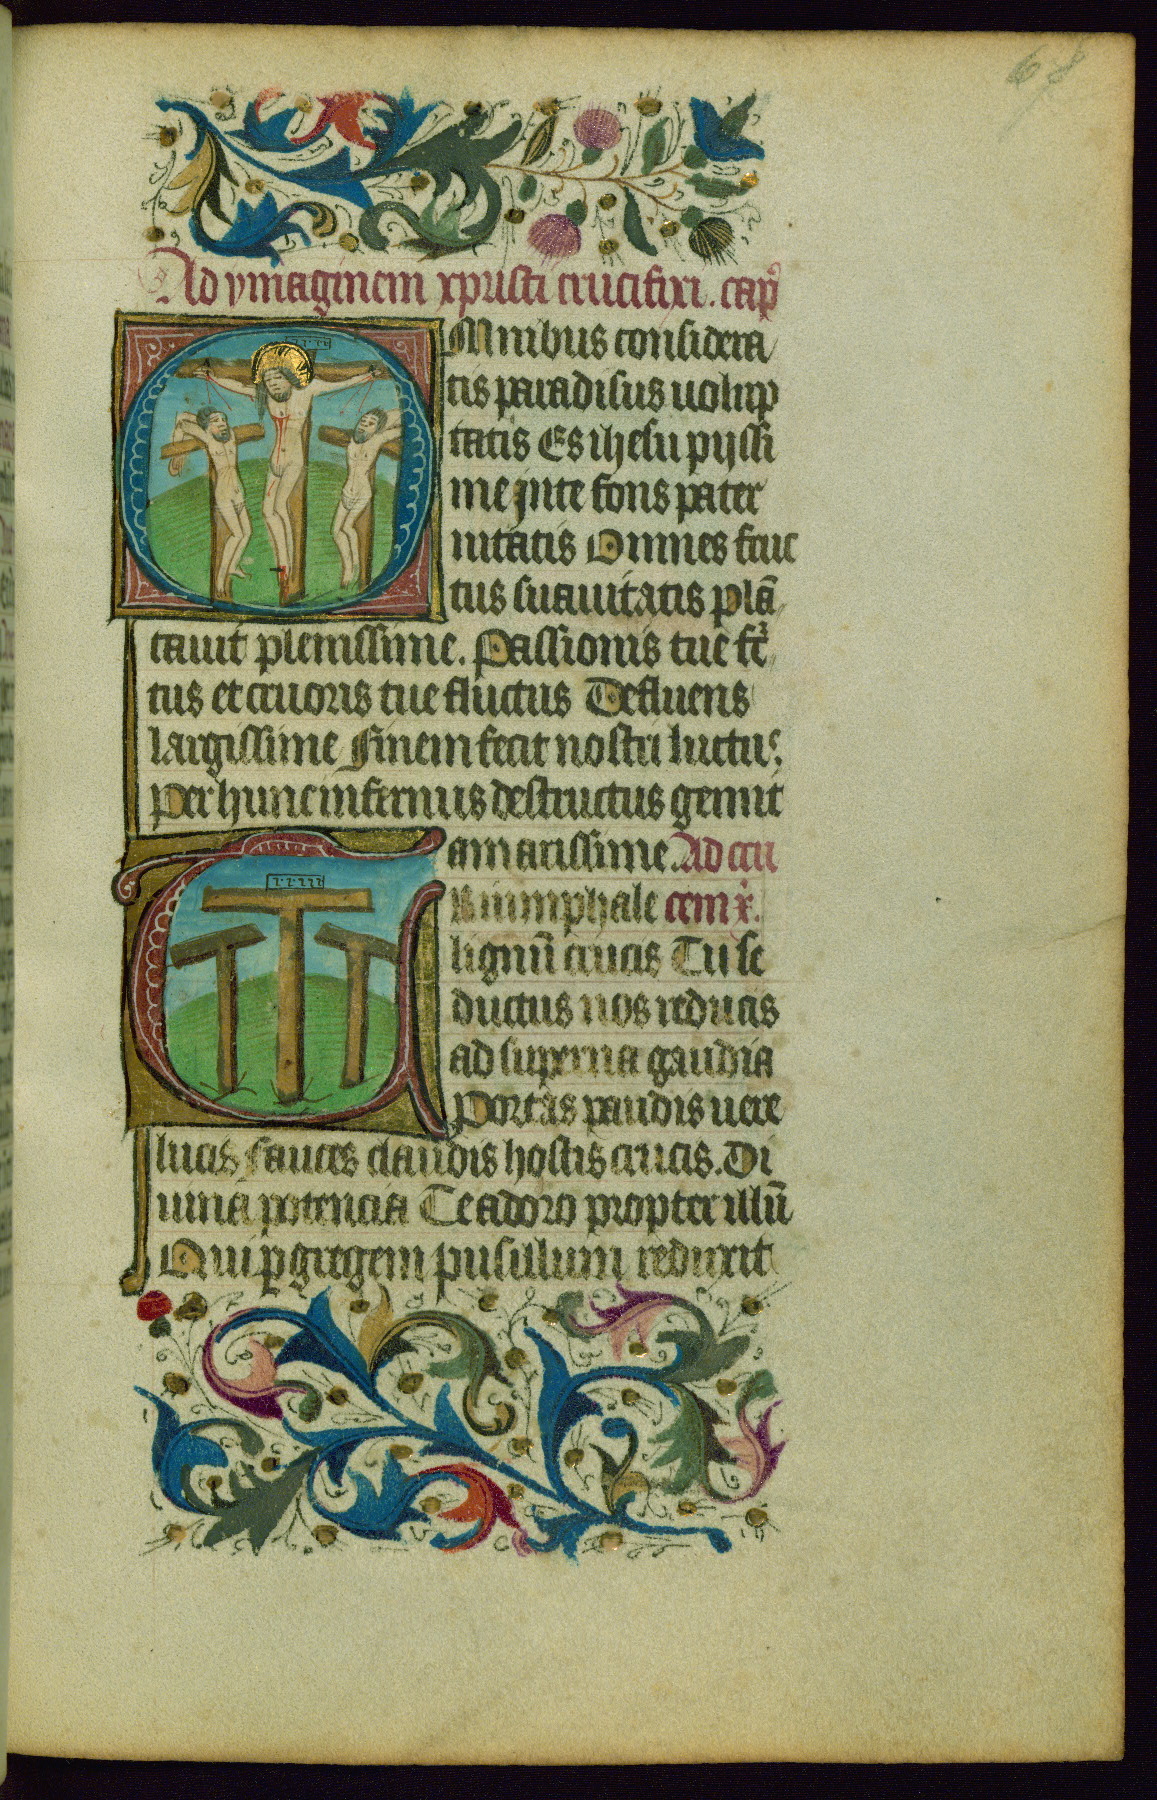 68
Ad ymaginem xpristi crucifixi. cap
Omnibus considera
tis paradisus uolup
tatis Es ihesu pijssi
me jnte fons pater
nitatis Omnes fruc
tus suauitatis plā
tauit plenissime. Passionis tue
tus et cruoris tue fluctus Defluens
largissime Finem fecit nostri luctus
Per hunc infernus destructus gemit
amarissime. Ad cru
Triumphale cem x.
lignū crucis Tu se
ductus nos reducis
ad superna gaudia
Portas pandis uere
lucis fauces claudis hostis crucis. Di
uina potencia Te adoro propter illū
Qui p gregem pusillum reduxit